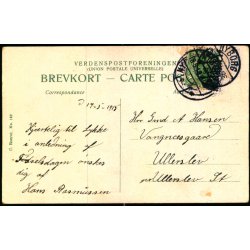 VERDENSPOSTFORENINGEN
(UNION POSTALE UNIVERSELLE)
BREVKORT - CARTE PO
Correspondance
D 19-5-1915
Hjertelig til Lykke
i anledning af
Fødselsdagen ønskes
dig af
Hans Rasmussen
Her Gmd A Hansen
Vangnesgaard
Ullerslev
pr Ullerslev St